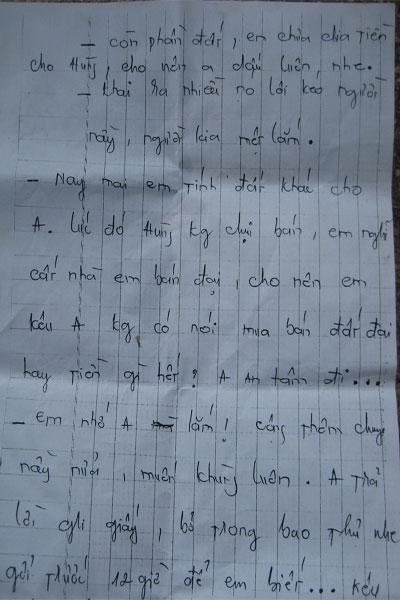 – còn phần đất, em chia chia tiền
cho Hùng, cho nên a dấu luôn, nhe.
– khai ra nhiều nó lôi kéo người
này, người kia mệt lắm.
– Nay mai em tính đất khác cho
A. lúc đó Hùng kg chịu bán, em nghĩ
cất nhà em bán đại, cho nên em
kêu A kg có nói mua bán đất đai
hay tiền gì hết? A An tâm đi...
– em nhớ A lắm! cộng thêm chuyện
này nữa, muốn khùng luôn. A trả
lời ghi giấy, bỏ trong bao thư nhe
gởi trước 12 giờ để em biết... kêu